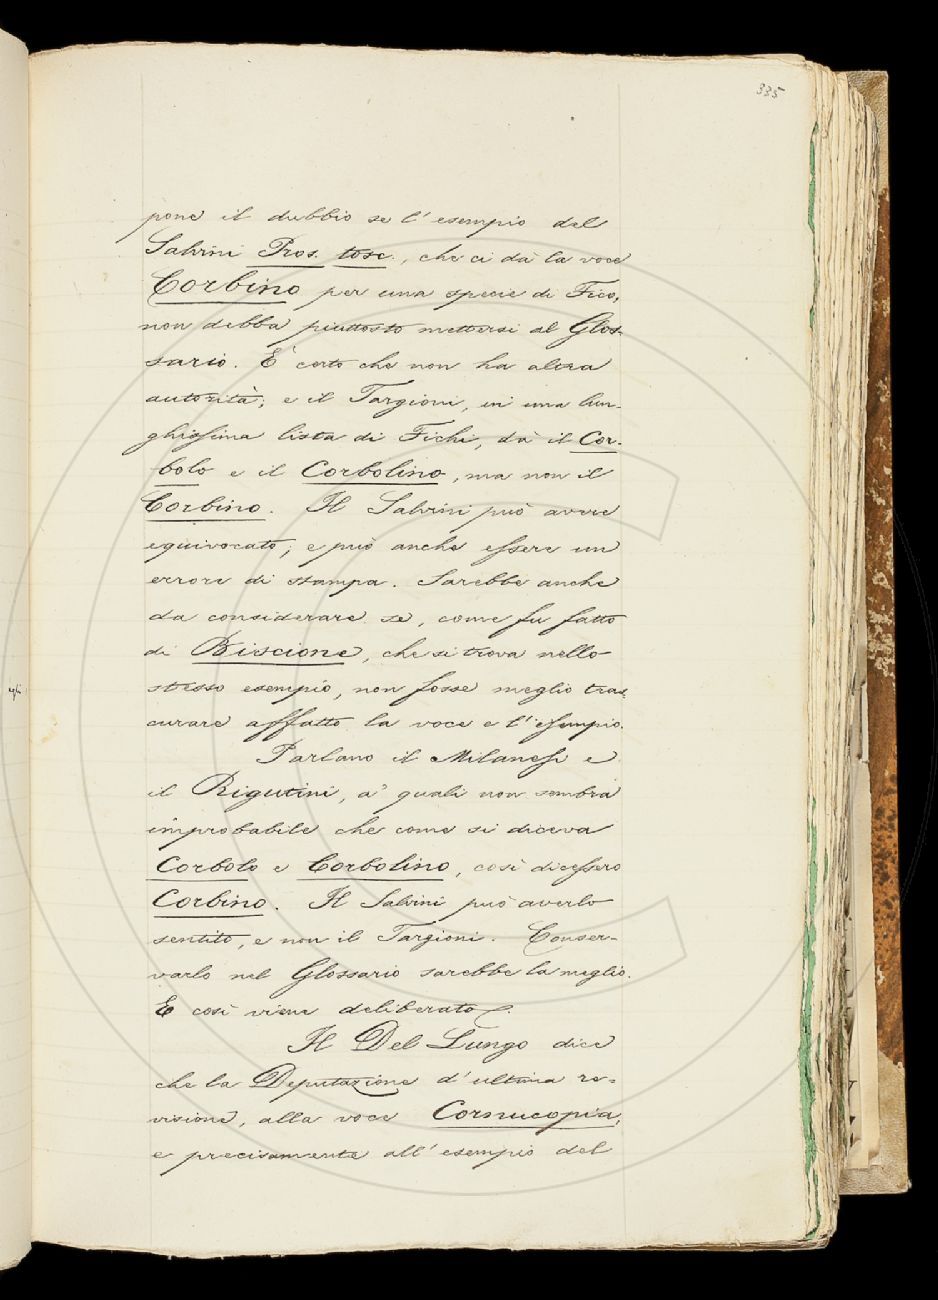 335
pone il dubbio se l'esempio del
Salvini Pros. tosc., che ci dà la voce
Corbino per una specie di Fico,
non debba piuttosto mettersi al Glos-
sario. È certo che non ha altra
autorità; e il Targioni, in una lun-
ghissima lista di Fichi, dà il Cor-
bolo e il Corbolino, ma non il
Corbino. Il Salvini può avere
equivocato; e può anche essere un
errore di stampa. Sarebbe anche
da considerare se, come fu fatto
di Biscione, che si trova nello
stesso esempio, non fosse meglio tras-
curare affatto la voce e l'esempio.
Parlano il Milanesi e
il Rigutini, a' quali non sembra
improbabile che come si diceva
Corbolo e Corbolino, così dicessero
Corbino. Il Salvini può averlo
sentito, e non il Targioni. Conser-
varlo nel Glossario sarebbe la meglio.
E così viene deliberato.
Il Del Lungo dice
che la Deputazione d'ultima re-
visione, alla voce Cornucopia,
e precisamente all'esempio del